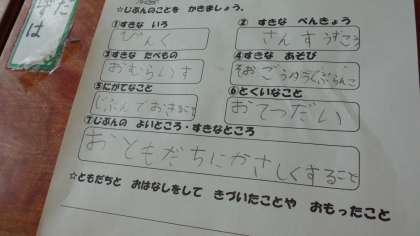 ☆じぶんのことを かきましょう。
①すきな いろ
ぴんく
② すきな べんきょう
さんすう
③すきな たべもの
おむらいす
④すきな あそび
⑤にがてなこと
じぶんでおきること
⑥とくいなこと
おてつだい
⑦じぶんの よいところ・すきなところ
おともだちにやさしくすること
☆ともだちと おはなしをして きづいたことや おもったこと